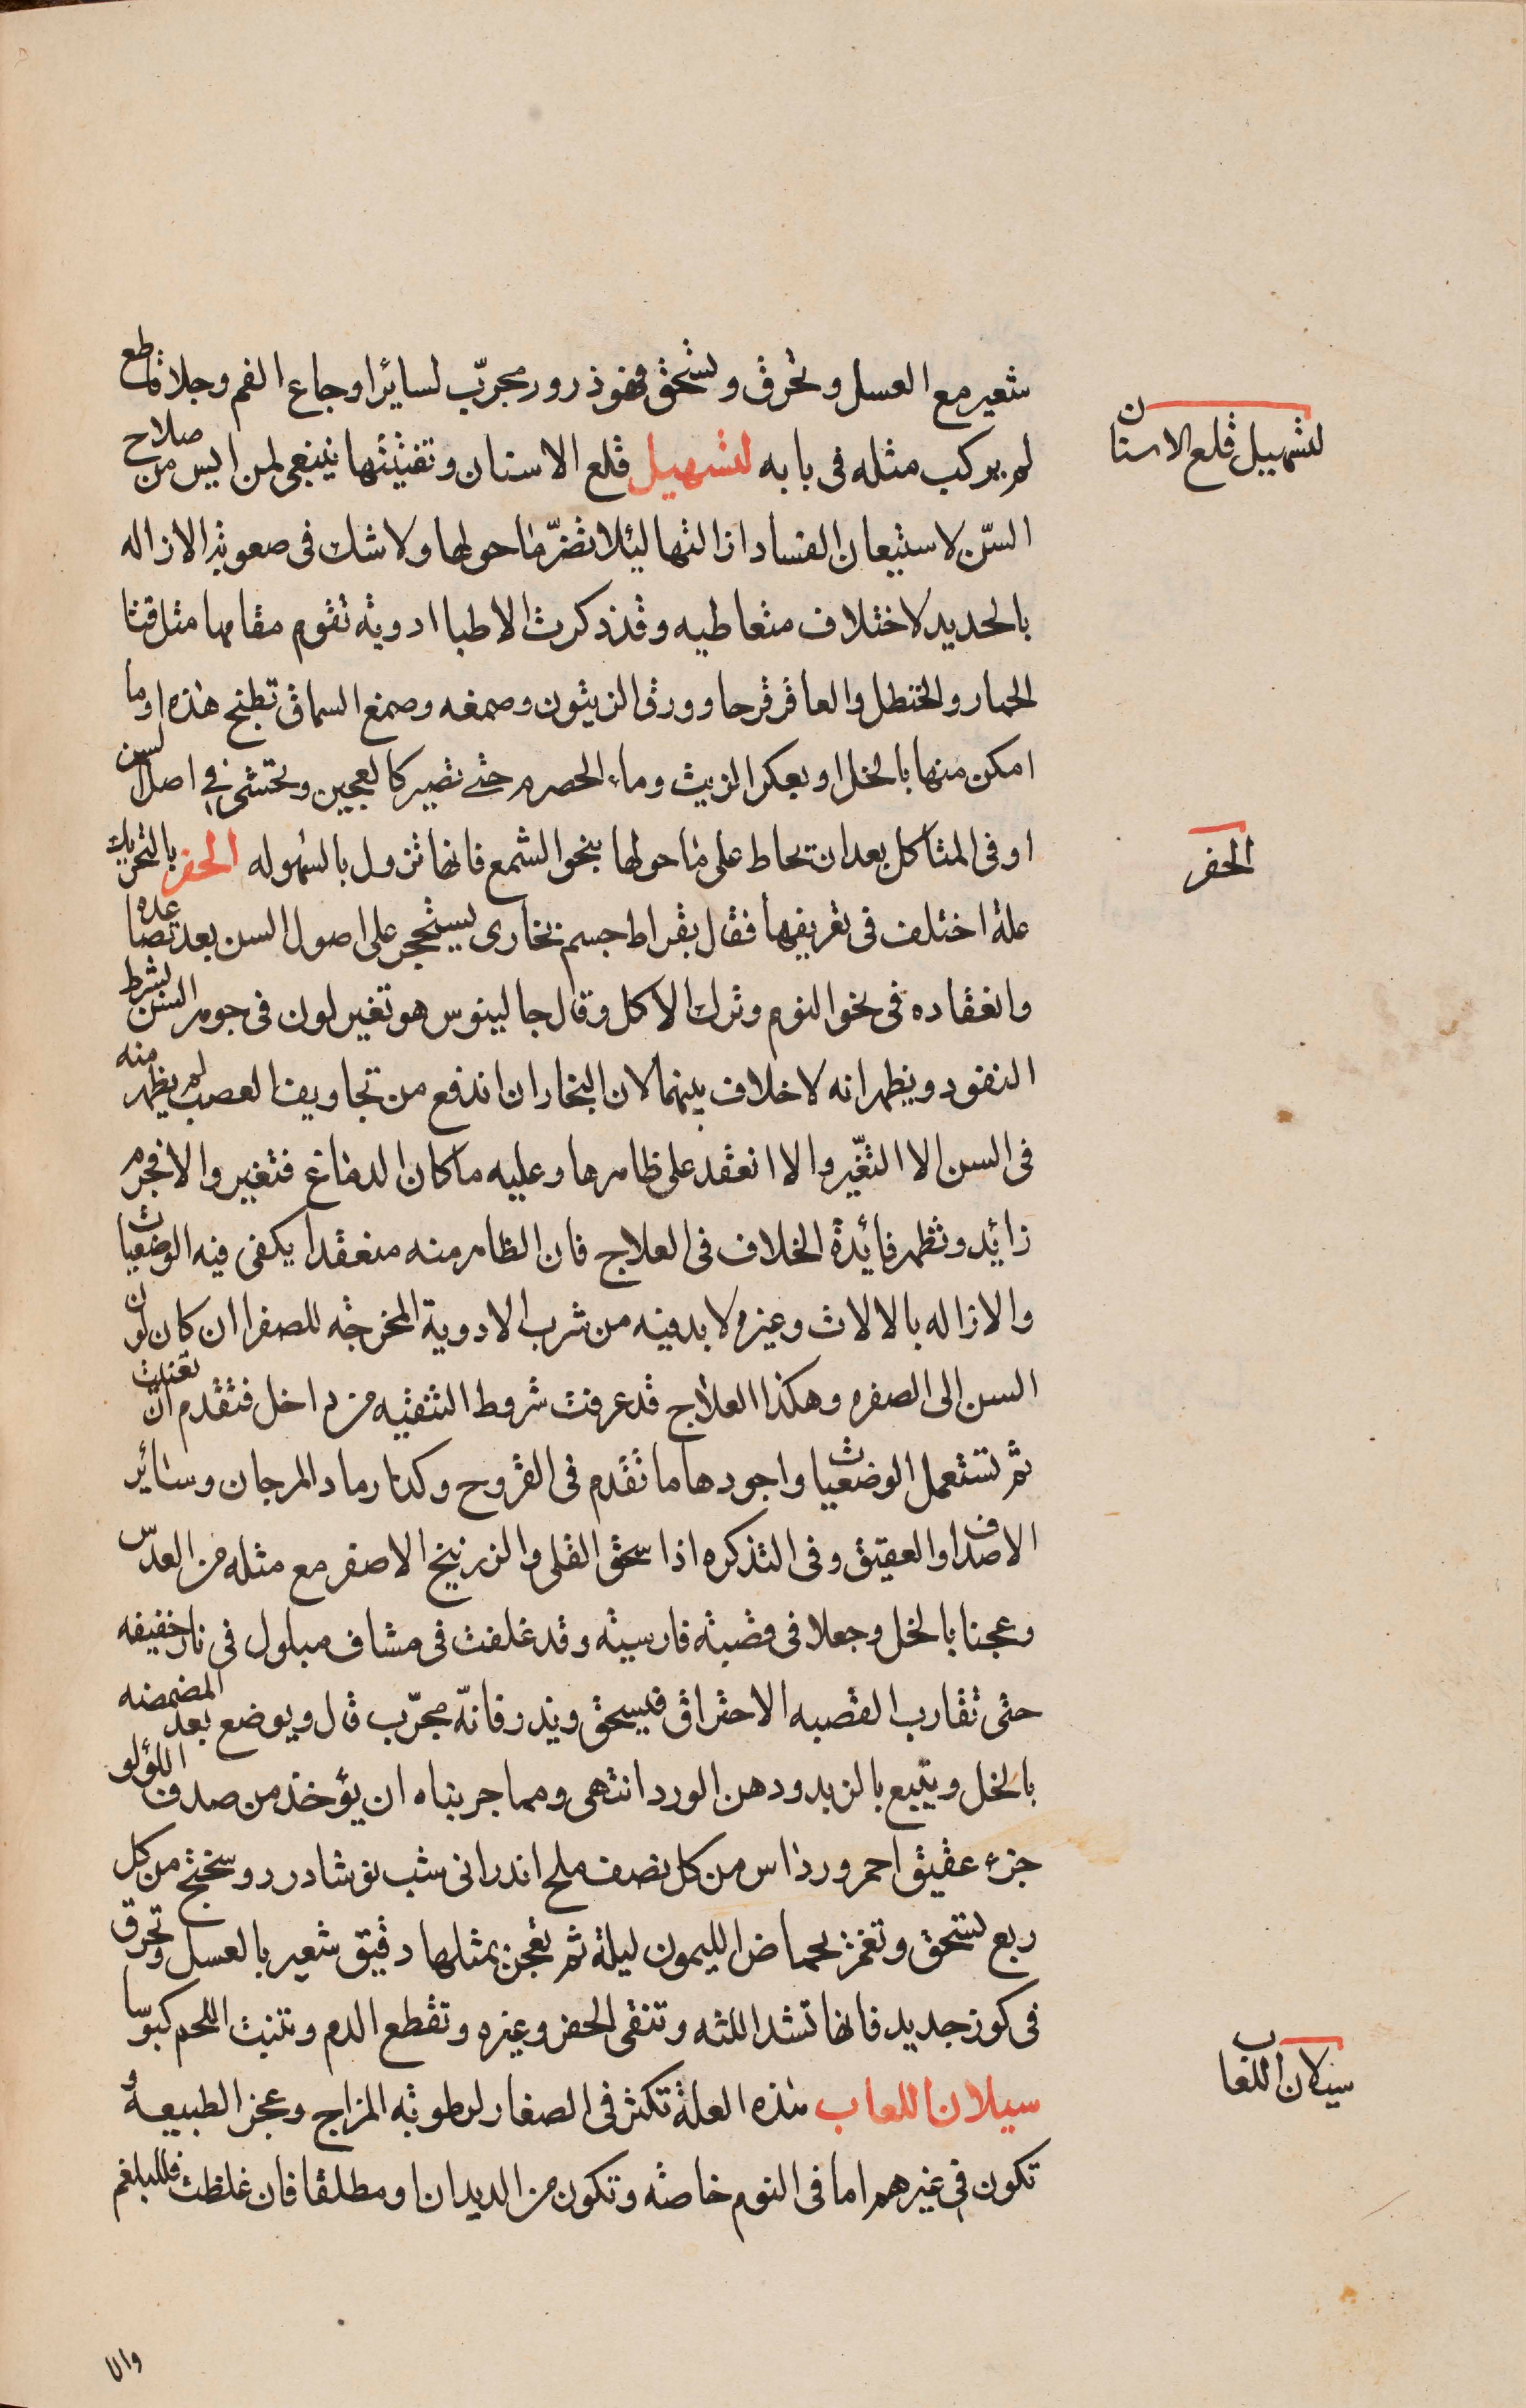 شعير مع العسل وتحرق وتسحق فهو ذرور مجرّب لسائر اوجاع الفم وجلا قاطع
لم يركب مثله فى بابه لتسهيل قلع الاسنان وتفتيتها ينبغى لمن ايس من صلاح
لتسهيل قلع الاسنان
السّن لاستيعان الفساد ازالتها ليئلا تضرّ ما حولها ولا شك فى صعوبة الازاله
بالحديد لاختلاف متعاطيه وقد ذكرت الاطبا ادوية تقوم مقامها مثل قثا
الحمار والحنظل والعاقرقرحا وورق الزيتون وصمغه وصمغ السماق تطبخ هذه اوما
امكن منها بالخل او بعكر الزيت وماء الحصرم حتى تصير كالعجين وتحتشى فى اصل السن
او فى المتاكل بعد ان تحاط على ما حولها بنحو الشمع فانها تزول بالسهوله الحفر بالتحريك
الحفر
علة اختلف فى تعريفها فقال بقراط جسم بخارى يستحجر على اصول السن بعد تصاعده
وانعقاده فى نحو النوم وترك الاكل وقال جالينوس هو تغير لون فى جوهر السن بشرط
النفود ويظهر انه لا خلاف بينهما لان البخار ان اندفع من تجاويف العصب لم يظهر منه
فى السن الا التغّير والا انعقد على ظاهرها وعليه ما كان الدماغ فتغير والا فجرم
زائد وتظهر فائدة الخلاف فى العلاج فان الظاهر منه منعقدا يكفى فيه الوضعيات
والازاله بالالات وغيره لا بد فيه من شرب الادوية المخرجه للصفرا ان كان لون
السن الى الصفره وهكذا العلاج قد عرفت شروط التنقيه من داخل فتقدم ان تعنيت
ثم تستعمل الوضعيات واجودها ما تقدم فى القروح وكدا رماد المرجان وسائر
الاصداف والعقيق وفى التذكره اذا سحق القلى والزرنيخ الاصفر مع مثله من العدس
وعجنا بالخل وجعلا فى قضبة فارسية وقد غلفت فى مشاف مبلول فى نار خفيفه
حتى تقارب القصبه الاحتراق فيسحق ويذر فانّه مجرّب قال ويوضع بعد المضمضه
بالخل ويتبع بالزبد ودهن الورد انتهى ومما جربناه ان يؤخذ من صدف اللؤلو
جزء عقيق احمر ورد اس من كل نصف ملح اندرانى شب نوشادر روسختج من كل
ربع تسحق وتغمر بحماض الليمون ليلة ثم تعجن بمثلها دقيق شعير بالعسل وتحرق
فى كوز جديد فانها تشد اللثه وتنقى الحفر وغيره وتقطع الدم وتنبت اللحم كبوسا
سيلان اللعاب هذه العلة تكثر فى الصغار لرطوبة المزاج وعجز الطبيعة و
سيلان اللعاب
تكون فى غيرهم اما فى النوم خاصة وتكون من الديدان او مطلقا فان غلظت فللبلغم
والا